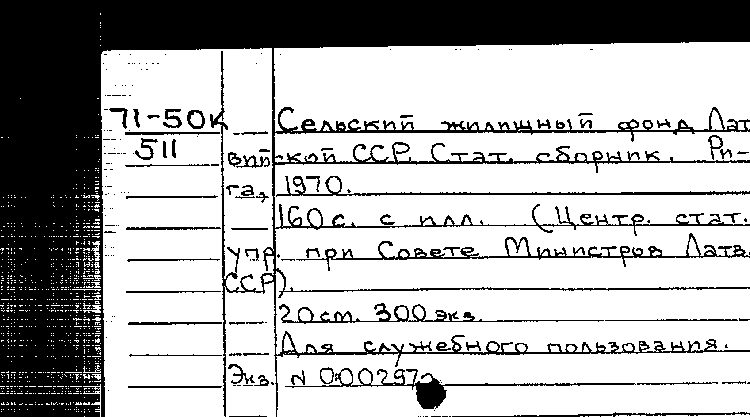 71-50К Сельский жилищный фонд Лат
511 вийской ССР. Стат. сборник. Ри-
га, 1970.
160 с. с илл. (Центр. стат.
упр. при Совете Министров Латв.
ССР).
20 см. 300 экз.
Для служебного пользования.
Экз. N